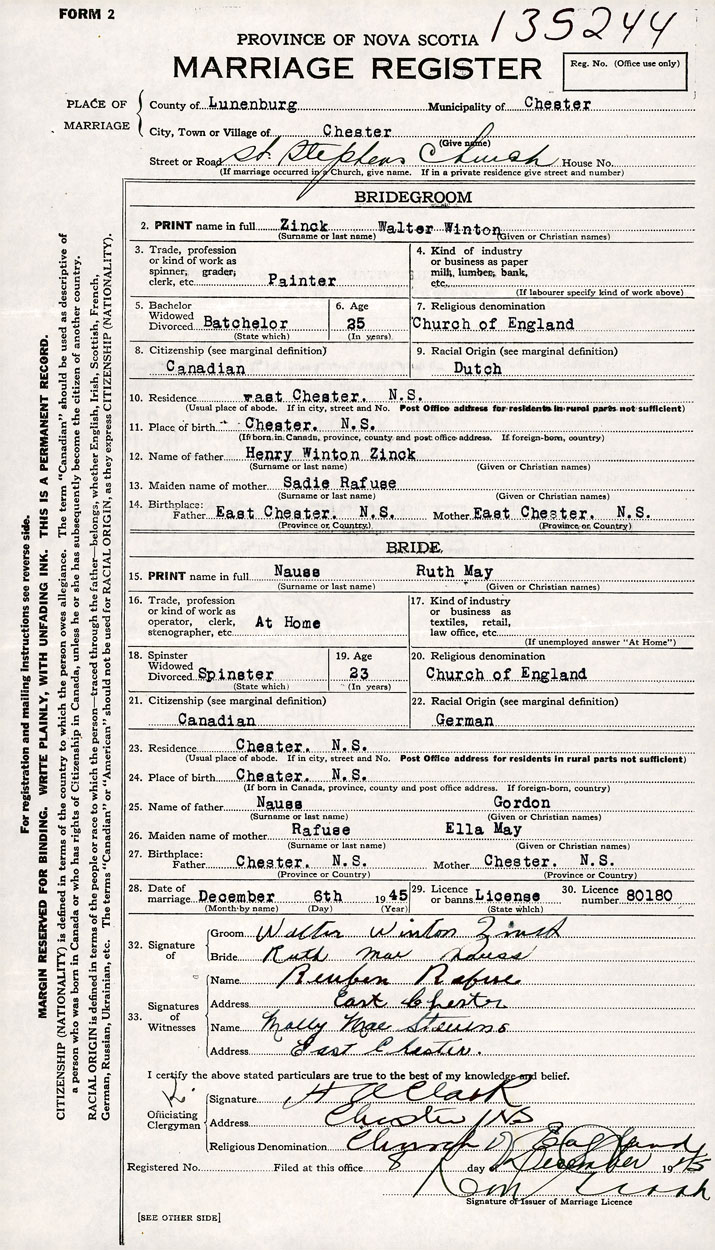 FORM 2
135244
PROVINCE OF NOVA SCOTIA
MARRIAGE REGISTER
Reg. No. (Office use only)
PLACE OF MARRIAGE
County of Lunenburg Municipality of Chester
City, Town or Village of Chester
(Give name)
Street or Road St. Stephens Church House No.
(If marriage occurred in a Church, give name. If in a private residence give street and number)
BRIDEGROOM
2. PRINT name in full Zinck Walter Winton
(Surname or last name) (Given or Christian names)
3. Trade, profession
or kind of work as
spinner, grader,
clerk, etc. Painter
4. Kind of industry
or business as paper
milk, lumber, bank,
etc.
(If labourer specify kind of work above)
5. Bachelor
Widowed
Divorced Batchelor
(State which)
6. Age
25
(In years)
7. Religious denomination
Church of England
8. Citizenship (see marginal definition)
Canadian
9. Racial Origin (see marginal definition)
Dutch
10. Residence East Chester. N.S.
(Usual place of abode. If in city, street and No. Post Office address for residents in rural parts not sufficient)
11. Place of birth Chester. N.S.
(If born in Canada, province, county and post office address. If foreign-born, country)
12. Name of father Henry Winton Zinck
(Surname or last name) (Given or Christian names)
13. Maiden name of mother Sadie Rafuse
(Surname or last name) (Given or Christian names)
14. Birthplace:
Father East Chester. N.S. Mother East Chester. N.S.
(Province or Country) (Province or Country)
BRIDE
15. PRINT name in full Nauss Ruth May
(Surname or last name) (Given or Christian names)
16. Trade, profession
or kind of work as
operator, clerk,
stenographer, etc. At Home
17. Kind of industry
or business as
textiles, retail,
law office, etc.
(If unemployed answer "At Home")
18. Spinster
Widowed
Divorced Spinster
(State which)
19. Age
23
(In years)
20. Religious denomination
Church of England
21. Citizenship (see marginal definition)
Canadian
22. Racial Origin (see marginal definition)
German
23. Residence Chester. N.S.
(Usual place of abode. If in city, street and No. Post Office address for residents in rural parts not sufficient)
24. Place of birth Chester. N.S.
(If born in Canada, province, county and post office address. If foreign-born, country)
25. Name of father Nauss Gordon
(Surname or last name) (Given or Christian names)
26. Maiden name of mother Rafuse Ella May
(Surname or last name) (Given or Christian names)
27. Birthplace:
Father Chester. N.S. Mother Chester. N.S.
(Province or Country) (Province or Country)
28. Date of
marriage December 6th 1945
(Month by name) (Day) (Year)
29. Licence
or banns License
(State which)
30. Licence
number 80180
32. Signature of
Groom Walter Winton Zinck
Bride Ruth Mae Nauss
33. Signatures of Witnesses
Name Reuben Rafuse
Address East Chester
Name Molly Mae Stevens
Address East Chester.
I certify the above stated particulars are true to the best of my knowledge and belief.
Officiating Clergyman
Signature H A Clark
Address Chester NS
Religious Denomination Church of England
Registered No. Filed at this office 8 day of December 1945
Signature of Issuer of Marriage Licence
[SEE OTHER SIDE]
For registration and mailing instructions see reverse side.
MARGIN RESERVED FOR BINDING. WRITE PLAINLY, WITH UNFADING INK. THIS IS A PERMANENT RECORD.
CITIZENSHIP (NATIONALITY) is defined in terms of the country to which the person owes allegiance. The term "Canadian" should be used as descriptive of
a person who was born in Canada or who has rights of Citizenship in Canada, unless he or she has subsequently become the citizen of another country.
RACIAL ORIGIN is defined in terms of the people or race to which the person—traced through the father—belongs, whether English, Irish, Scottish, French,
German, Russian, Ukrainian, etc. The terms "Canadian" or "American" should not be used for RACIAL ORIGIN, as they express CITIZENSHIP (NATIONALITY).